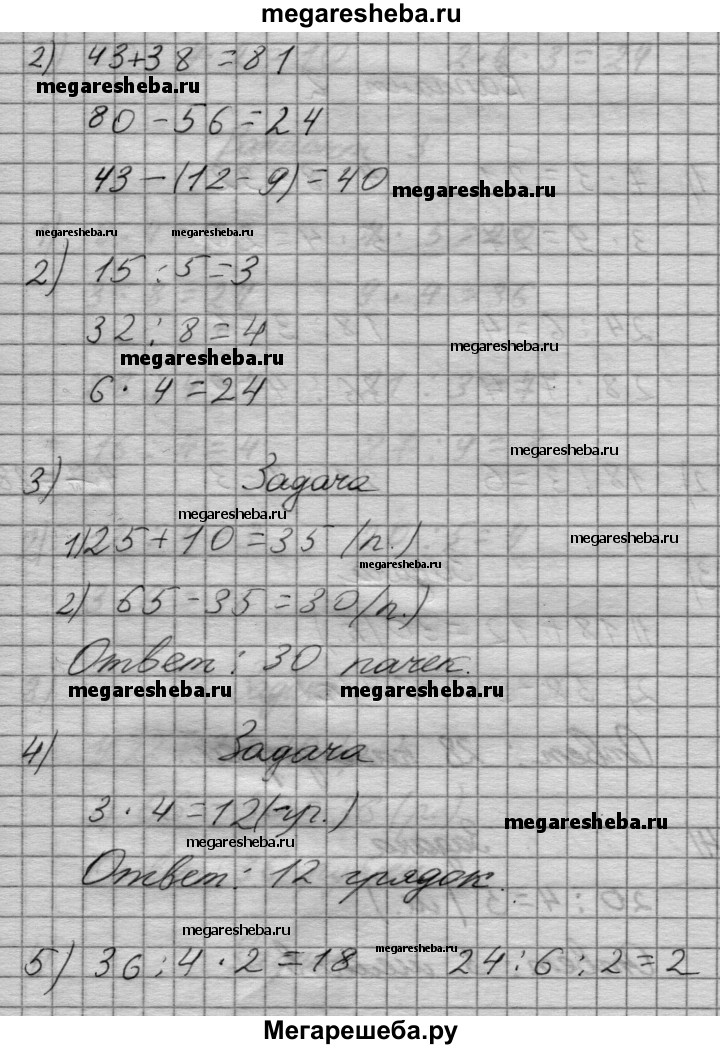 megaresheba.ru
2) 43+38 = 81
megaresheba.ru
80 - 56 = 24
43 - (12 - 9) = 40 megaresheba.ru
megaresheba.ru megaresheba.ru
2) 15 : 5 = 3
32 : 8 = 4
megaresheba.ru megaresheba.ru
6 · 4 = 24
megaresheba.ru
3) Задача
megaresheba.ru
1) 25 + 10 = 35 (п.) megaresheba.ru
megaresheba.ru
2) 65 - 35 = 30 (п.)
Ответ: 30 пачек.
megaresheba.ru megaresheba.ru
4) Задача
3 · 4 = 12 (гр.) megaresheba.ru
megaresheba.ru
Ответ: 12 грядок.
megaresheba.ru
5) 36 : 4 · 2 = 18 megaresheba.ru 24 : 6 : 2 = 2
megaresheba.ru
Мегарешеба.ру